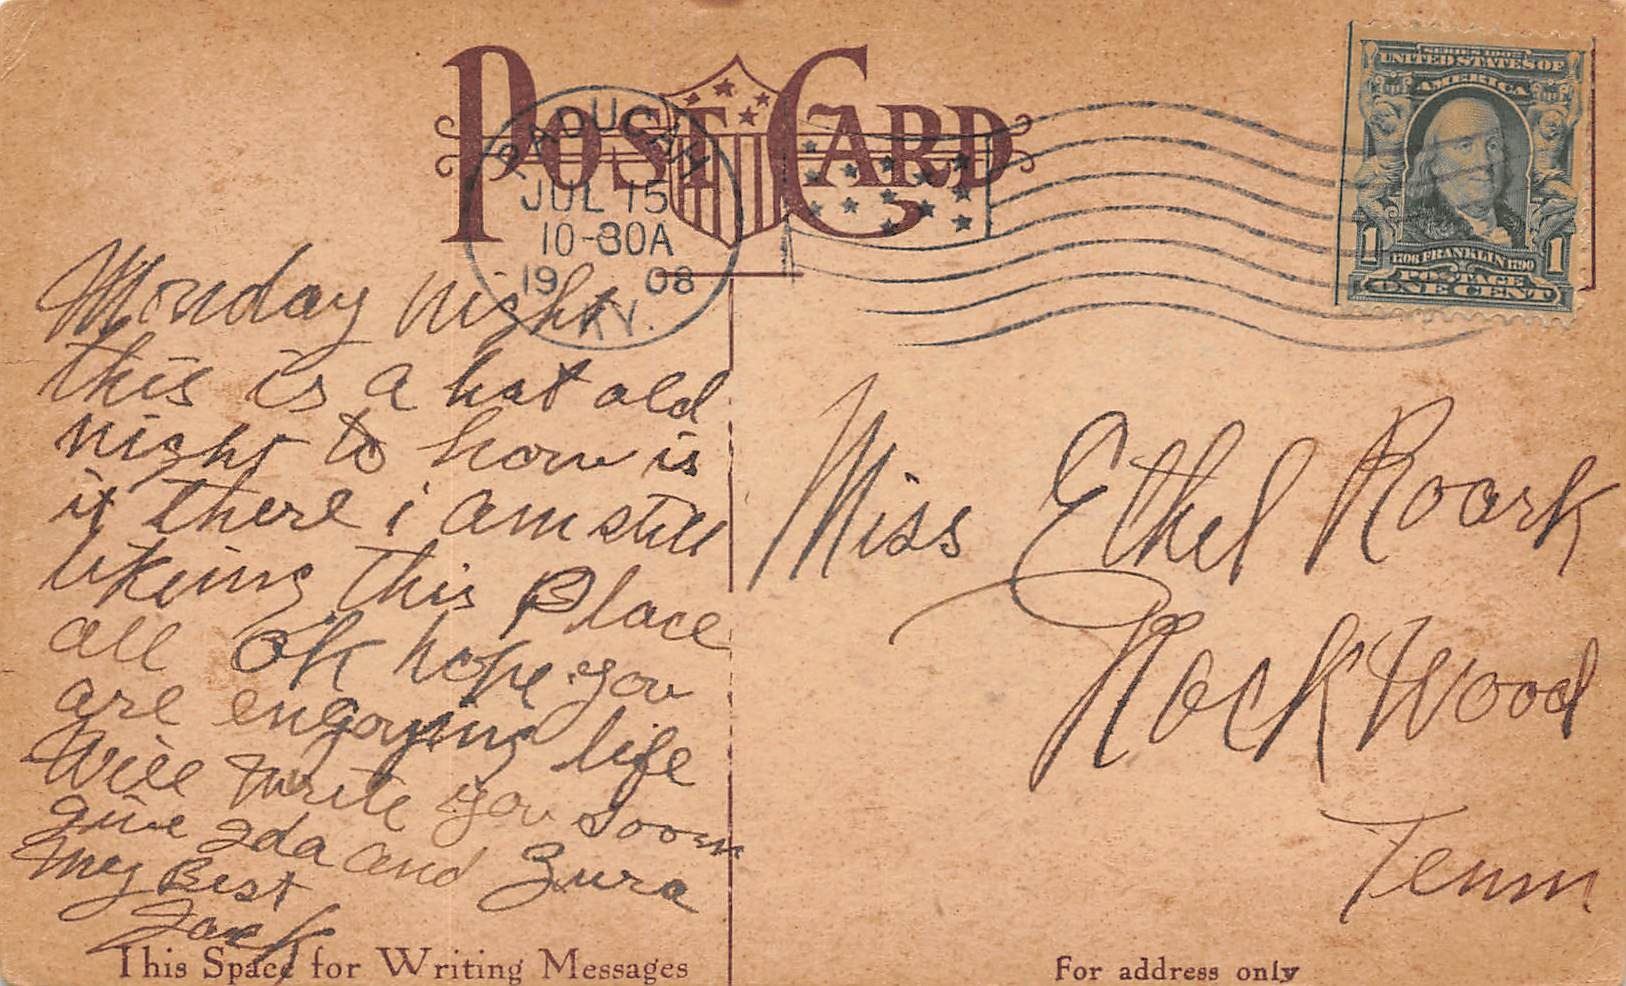 POST CARD
PADUCAH
JUL 15
10-30A
1908
KY.
SERIES 1902
UNITED STATES OF
AMERICA
1 1
1706 FRANKLIN 1790
POSTAGE
ONE CENT
Monday night
this is a hot old
night to how is
it there i am still
likeing this Place
all ok hope you
are engoying life
Will write you soon
give Ida and Zura
my Best
Jack
This Space for Writing Messages
Miss Ethel Roark
RockWood
Tenn
For address only